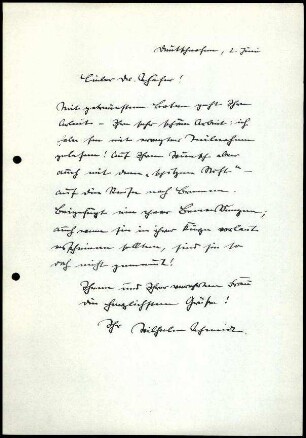 Deutschneofen, 2. Juni
Lieber Dr. Schäfer!
Mit getreuestem Boten geht Ihre
Arbeit – Ihre sehr schöne Arbeit: ich
habe sie mit reger Teilnahme
gelesen! Auf Ihren Wunsch aber
auch mit dem "spitzen Stift"
auf die Reise nach Bremen.
Beigefügt ein paar Bemerkungen;
auch wenn sie in ihrer Kürze vorlaut
erscheinen sollten, sind sie so
doch nicht gemeint!
Ihnen und Ihrer verehrten Frau
die herzlichsten Grüße!
Ihr Wilhelm Schmidt.